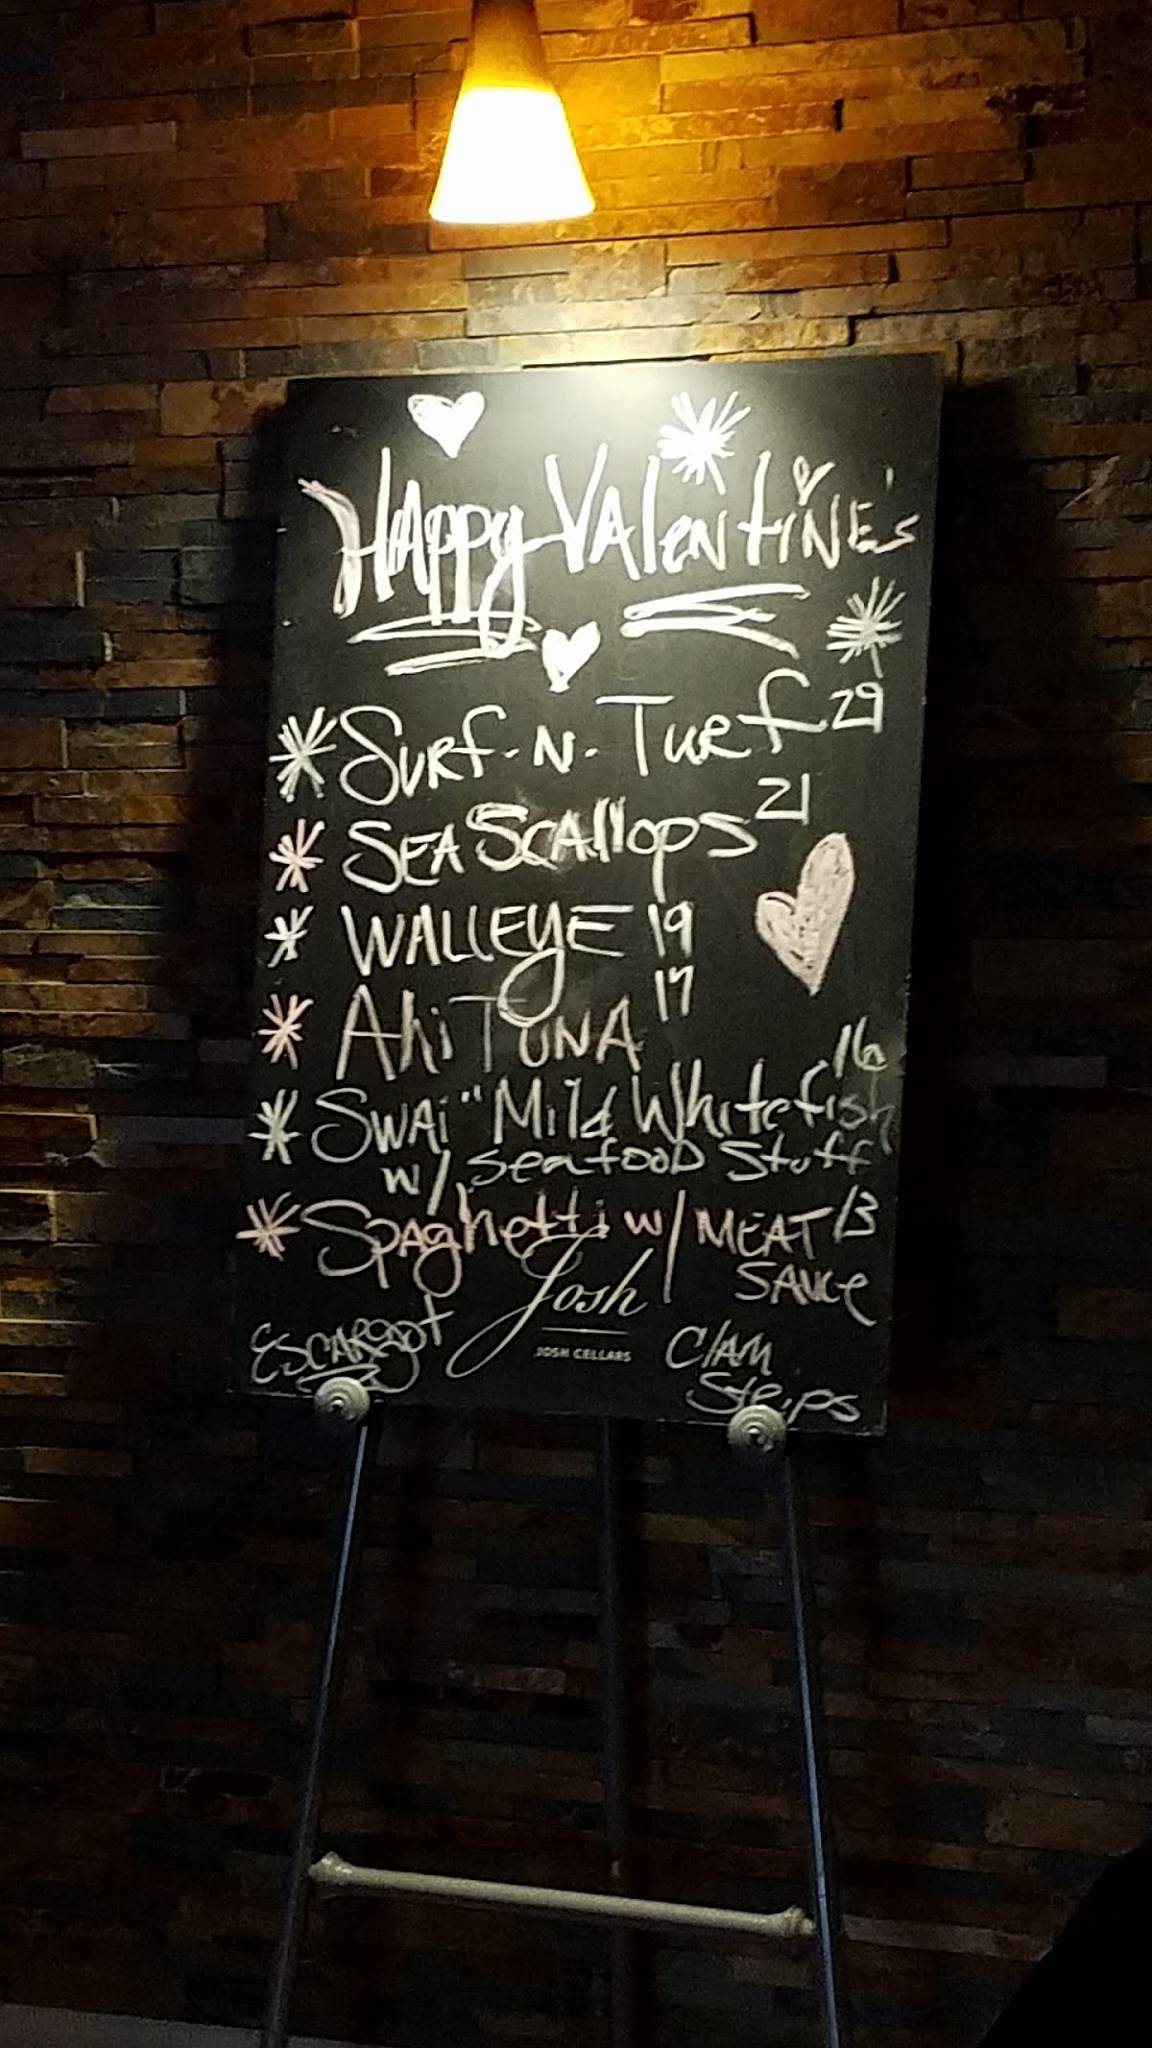 Happy Valentine's
Surf-N-Turf 29
Sea Scallops 21
Walleye 19
Ahi Tuna 17
Swai "Mild Whitefish 16
w/ seafood Stuff
Spaghetti w/ Meat 13
Sauce
Josh
JOSH CELLARS
Escargot
Clam
Strips